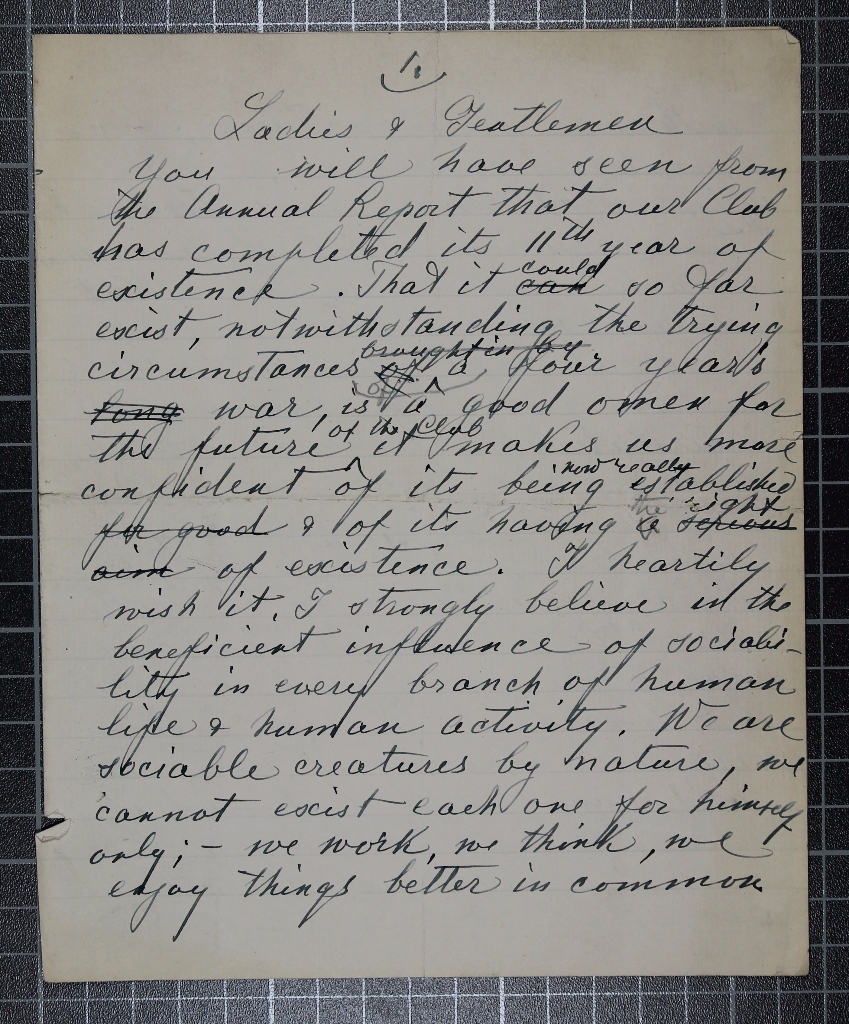 1.
Ladies & Gentlemen
You will have seen from
the Annual Report that our Club
has completed its 11th year of
existence. That it can could so far
exist, notwithstanding the trying
circumstances of brought in by a four year's
long war, is a good omen for
the future of the Club it makes us more
confident of its being now really established
for good & of its having a the serious right
aim of existence. I heartily
wish it. I strongly believe in the
beneficient influence of sociabi-
lity in every branch of human
life & human activity. We are
sociable creatures by nature, we
cannot exist each one for himself
only; – we work, we think, we
enjoy things better in common